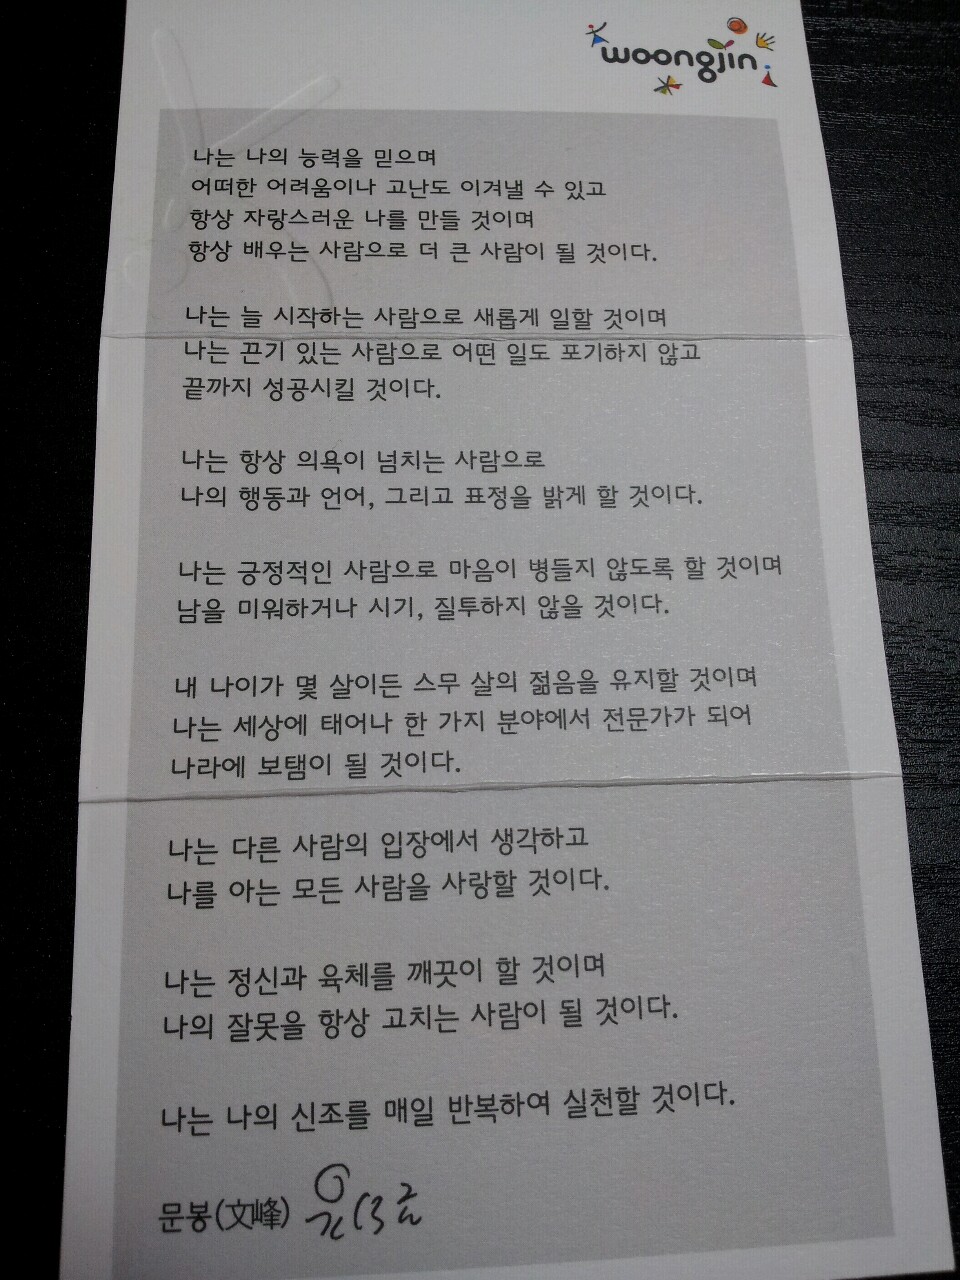 woongjin
나는 나의 능력을 믿으며
어떠한 어려움이나 고난도 이겨낼 수 있고
항상 자랑스러운 나를 만들 것이며
항상 배우는 사람으로 더 큰 사람이 될 것이다.
나는 늘 시작하는 사람으로 새롭게 일할 것이며
나는 끈기 있는 사람으로 어떤 일도 포기하지 않고
끝까지 성공시킬 것이다.
나는 항상 의욕이 넘치는 사람으로
나의 행동과 언어, 그리고 표정을 밝게 할 것이다.
나는 긍정적인 사람으로 마음이 병들지 않도록 할 것이며
남을 미워하거나 시기, 질투하지 않을 것이다.
내 나이가 몇 살이든 스무 살의 젊음을 유지할 것이며
나는 세상에 태어나 한 가지 분야에서 전문가가 되어
나라에 보탬이 될 것이다.
나는 다른 사람의 입장에서 생각하고
나를 아는 모든 사람을 사랑할 것이다.
나는 정신과 육체를 깨끗이 할 것이며
나의 잘못을 항상 고치는 사람이 될 것이다.
나는 나의 신조를 매일 반복하여 실천할 것이다.
문봉(文峰)